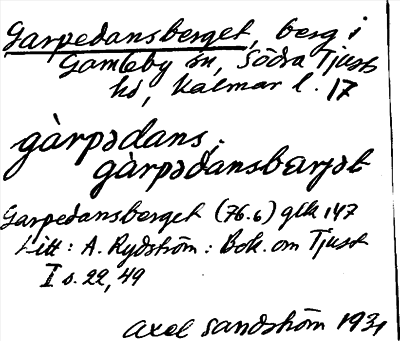 Garpedansberget, berg i
Gamleby sn, Södra Tjust
hd, Kalmar l. 17
gàrpədans,
gàrpədansbærjət
Garpedansberget (76.6) gek 147
Litt: A. Rydström: Bok. om Tjust
I s. 22, 49
Axel Sandström 1931